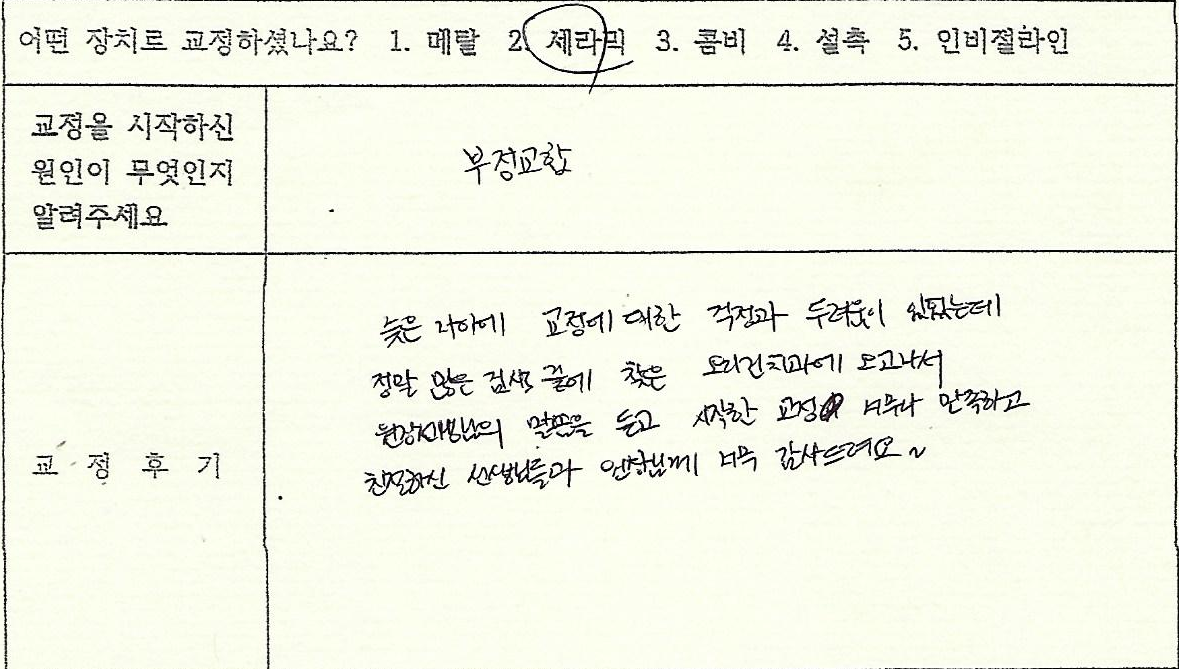 어떤 장치로 교정하셨나요? 1. 메탈 2. 세라믹 3. 콤비 4. 설측 5. 인비절라인
교정을 시작하신
원인이 무엇인지
알려주세요
부정교합
늦은 나이에 교정에 대한 걱정과 두려움이 있었는데
정말 많은 검색 끝에 찾은 오리건치과에 오고나서
원장선생님의 말씀을 듣고 시작한 교정 너무나 만족하고
친절하신 선생님들과 원장님께 너무 감사드려요~
교 정 후 기